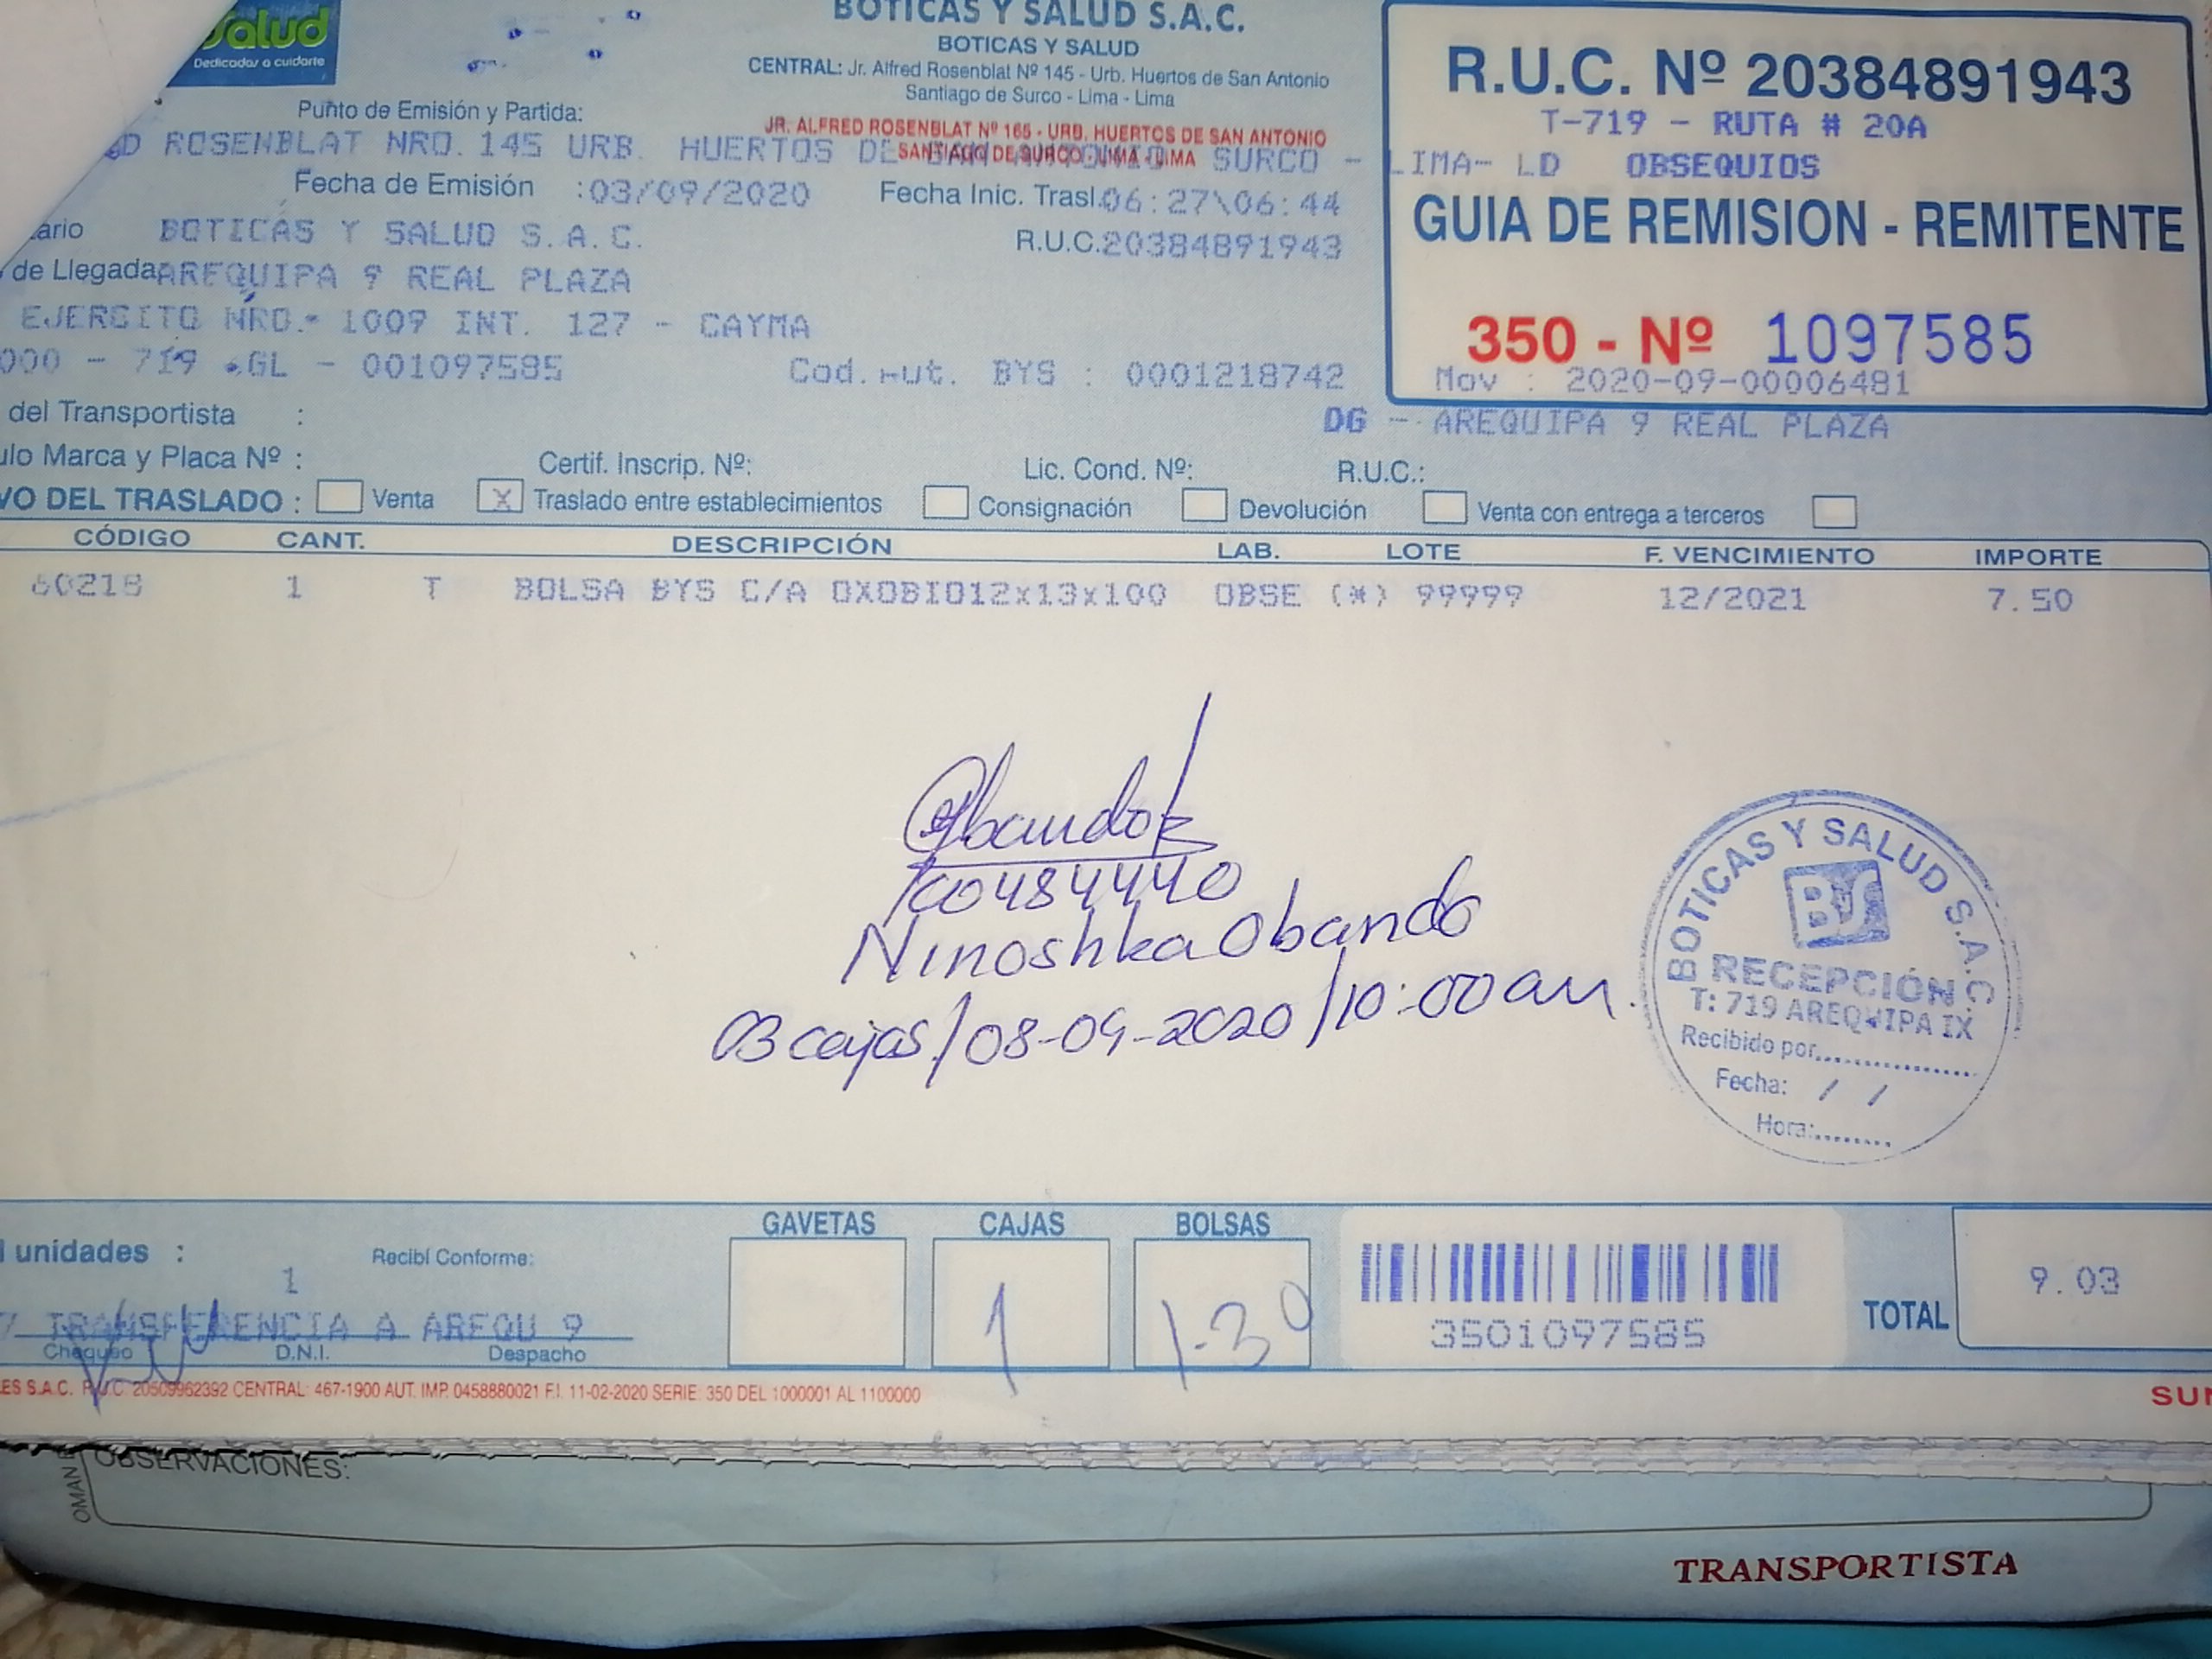 Salud
Dedicados a cuidarte
BOTICAS Y SALUD S.A.C.
BOTICAS Y SALUD
CENTRAL: Jr. Alfred Rosenblat Nº 145 - Urb. Huertos de San Antonio
Santiago de Surco - Lima - Lima
JR. ALFRED ROSENBLAT Nº 165 - URB. HUERTOS DE SAN ANTONIO
SANTIAGO DE SURCO - LIMA - LIMA
R.U.C. Nº 20384891943
T-719 - RUTA # 20A
OBSEQUIOS
GUIA DE REMISION - REMITENTE
350 - Nº 1097585
Mov : 2020-09-00006481
Punto de Emisión y Partida:
ROSENBLAT NRO. 145 URB. HUERTOS DE SAN ANTONIO SURCO - LIMA- LD
Fecha de Emisión :03/09/2020 Fecha Inic. Trasl. 06:27\06:44
ario BOTICAS Y SALUD S.A.C. R.U.C. 20384891943
de Llegada AREQUIPA 9 REAL PLAZA
EJERCITO NRO. 1009 INT. 127 - CAYMA
000 - 719 .GL - 001097585 Cod. Aut. BYS : 0001218742
del Transportista :
DG - AREQUIPA 9 REAL PLAZA
ulo Marca y Placa Nº : Certif. Inscrip. Nº: Lic. Cond. Nº: R.U.C.:
VO DEL TRASLADO : Venta X Traslado entre establecimientos Consignación Devolución Venta con entrega a terceros
CÓDIGO CANT. DESCRIPCIÓN LAB. LOTE F. VENCIMIENTO IMPORTE
60218 1 T BOLSA BYS C/A OXOBIO12x13x100 OBSE (*) 99999 12/2021 7.50
Obando
70484440
Ninoshka Obando
03 cajas / 08-09-2020 / 10:00 am.
BOTICAS Y SALUD S.A.C.
BS
RECEPCIÓN
T: 719 AREQUIPA IX
Recibido por
Fecha: / /
Hora:
GAVETAS CAJAS BOLSAS
l unidades : 1 Recibí Conforme:
1 1-30
TRANSFERENCIA A AREQU 9
Chequeo D.N.I. Despacho
3501097585
TOTAL 9.03
ES S.A.C. R.U.C. 20509962392 CENTRAL: 467-1900 AUT. IMP. 0458880021 F.I. 11-02-2020 SERIE: 350 DEL 1000001 AL 1100000
SUN
OBSERVACIONES:
OMAN
TRANSPORTISTA